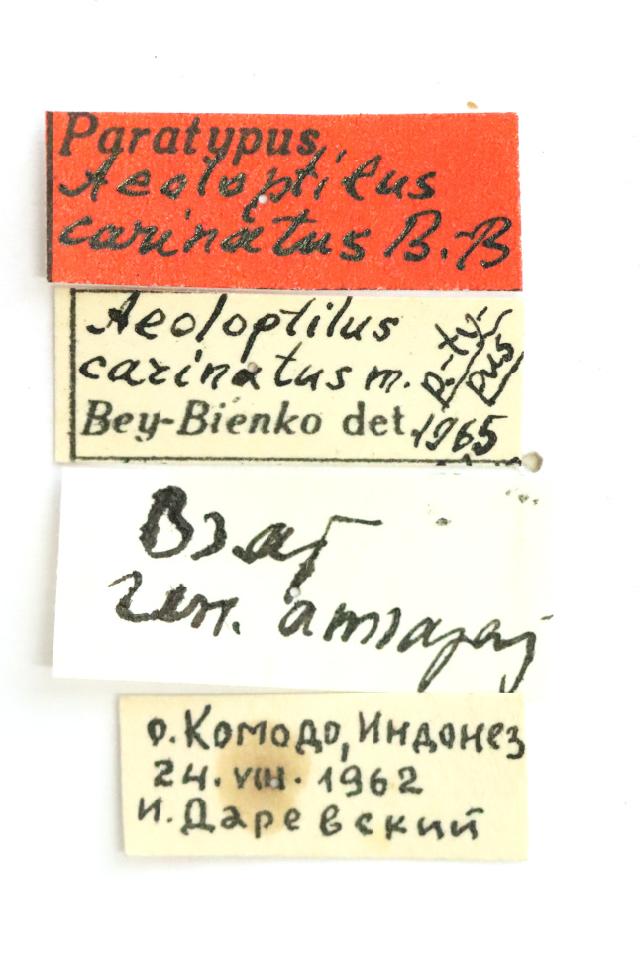 Paratypus
Aeoloptilus
carinatus B.-B
Aeoloptilus
carinatus m.
p.-ty-
pus
Bey-Bienko det. 1965
Взят
ген. аппарат
о. Комодо, Индонез
24. VIII. 1962
И. Даревский